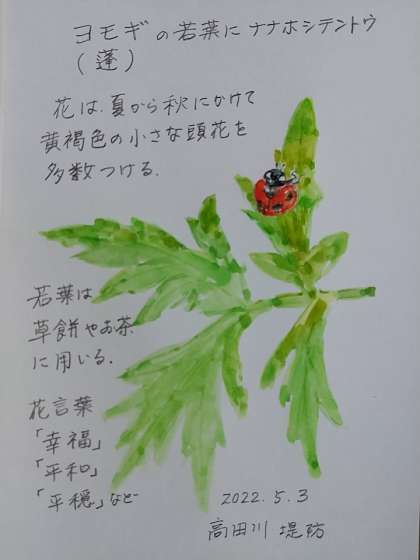 ヨモギの若葉にナナホシテントウ
(蓬)
花は、夏から秋にかけて
黄褐色の小さな頭花を
多数つける.
若葉は
草餅やお茶
に用いる.
花言葉
「幸福」
「平和」
「平穏」など
2022.5.3
高田川 堤防